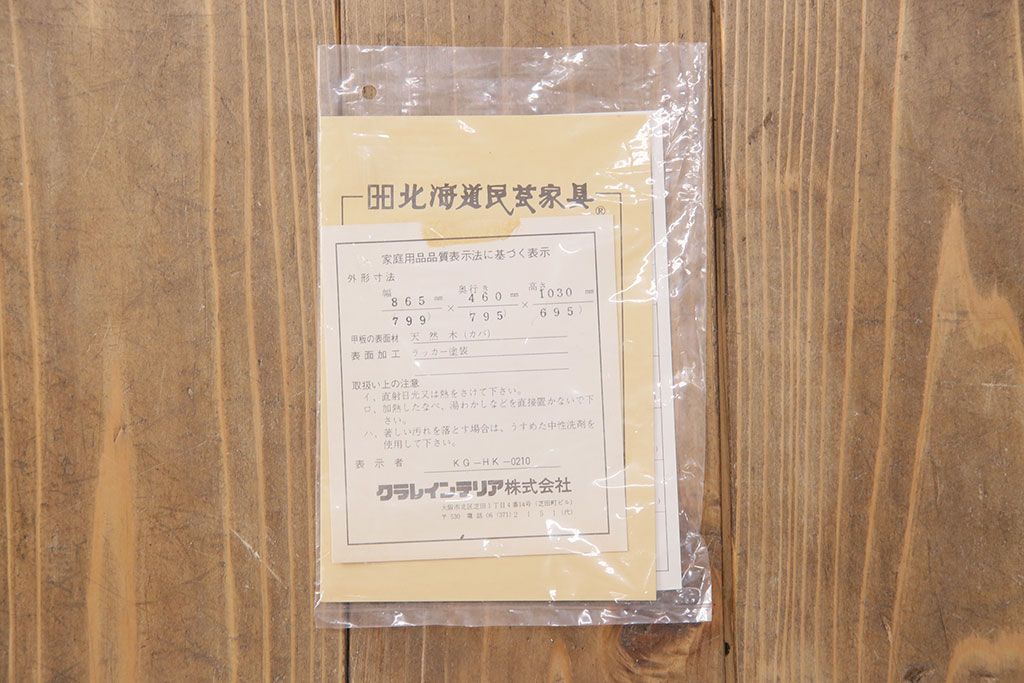 北海道民芸家具®
家庭用品品質表示法に基づく表示
外形寸法
幅 奥行き 高さ
865mm × 460mm × 1030mm
799) 795) (695)
甲板の表面材 天然木(カバ)
表面加工 ラッカー塗装
取扱い上の注意
イ、直射日光又は熱をさけて下さい。
ロ、加熱したなべ、湯わかしなどを直接置かないで下
さい。
ハ、著しい汚れを落とす場合は、うすめた中性洗剤を
使用して下さい。
表示者 KG-HK-0210
クラレインテリア株式会社
大阪市北区芝田1丁目4番14号(芝田町ビル)
〒530 電話 06(371)2151(代)